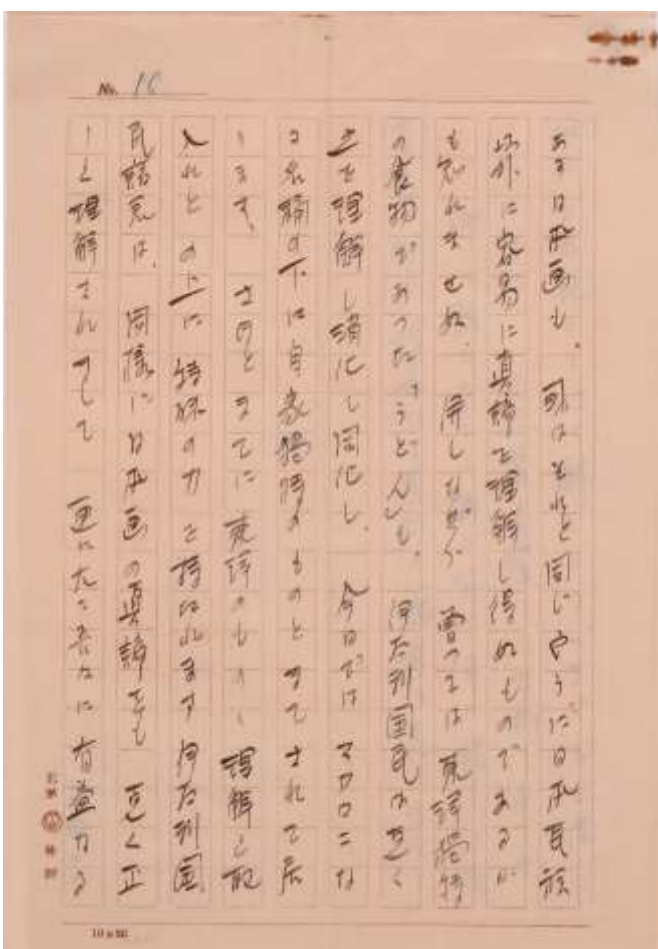 No. 16
あるは日本画も、或はそれと同じやうに日本民族
以外に容易に真諦を理解し得ぬものであるか
も知れませぬ、併しながら 曾つては東洋独特
の食物であつた「うどん」も、伊太利国民は克く
之を理解し消化し同化し、今日では マカロニな
る名稱の下に自家独特のものとまでされて居
ります、さほどまでに東洋のものゝ理解と取
入れとの上に特殊の力を持たれます伊太利国
民諸君は、同様に日本画の真諦をも 克く正
しく理解されまして 画にたつさ に有益なる
10